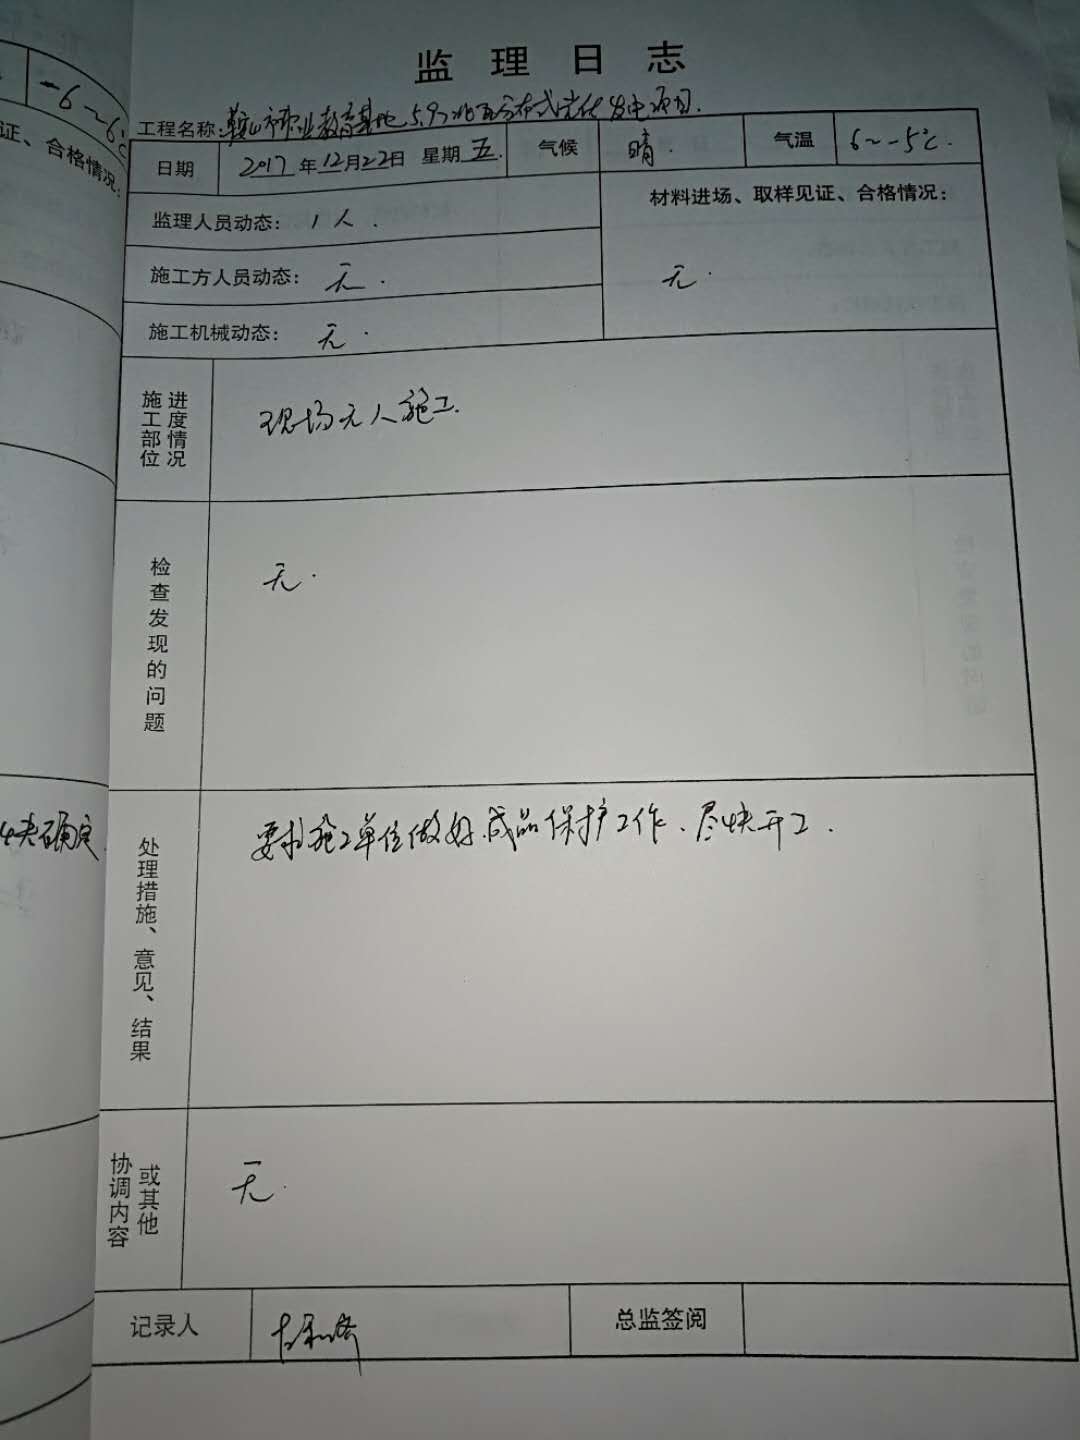 监理日志
工程名称:鞍山市职业教育基地5.9兆瓦分布式光伏发电项目.
日期 2017年12月22日 星期五. 气候 晴. 气温 6~-5℃.
监理人员动态: 1人.
材料进场、取样见证、合格情况:
施工方人员动态: 无.
无.
施工机械动态: 无.
施工部位
进度情况
现场无人施工.
检查发现的问题
无.
处理措施、意见、结果
要求施工单位做好成品保护工作、尽快开工.
协调内容
或其他
无.
记录人
总监签阅
-6~-6℃
证、合格情况:
快确定